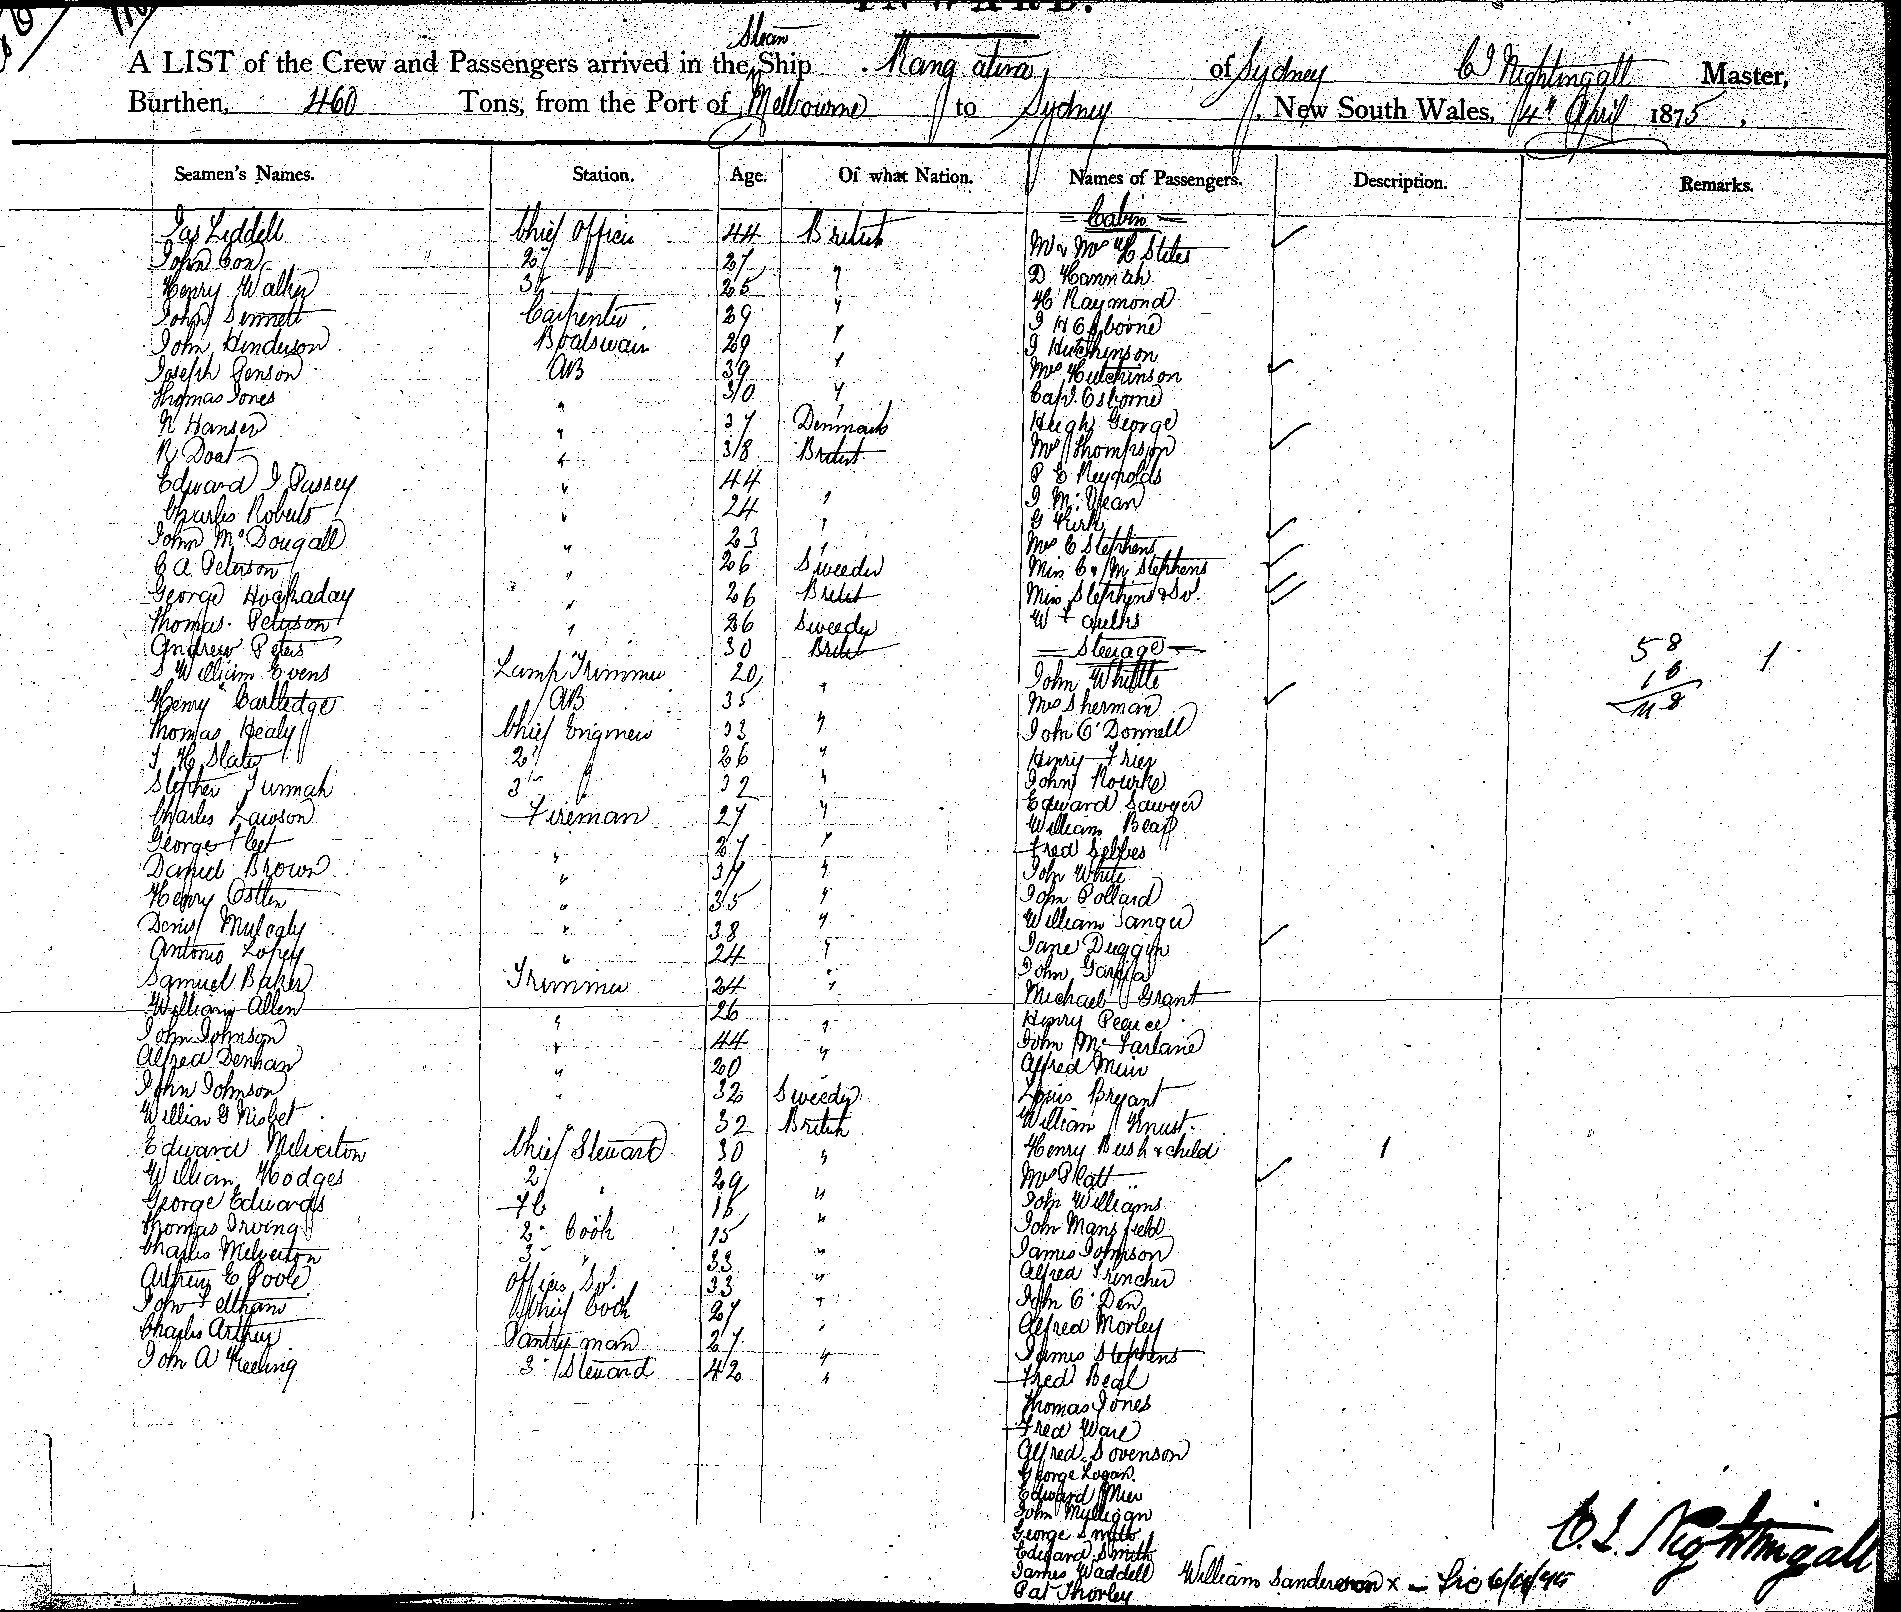 INWARD.
Steam
A LIST of the Crew and Passengers arrived in the Ship Rangatira of Sydney C I Nightingall Master,
Burthen, 460 Tons, from the Port of Melbourne to Sydney, New South Wales, 4th April 1875,
Seamen's Names. Station. Age. Of what Nation. Names of Passengers. Description. Remarks.
Jas Liddell Chief Officer 44 British
John Con 2d " 27 "
Henry Walker 3d 25 "
John Sennett Carpenter 29 "
John Henderson Boatswain 29 "
Joseph Penson AB 39 "
Thomas Jones " 30 "
N Hansen " 37 Denmark
R Doat " 38 British
Edward J Passey " 44 "
Charles Roberts " 24 "
John McDougall " 23 "
C A Peterson " 26 Sweeden
George Hockaday " 26 British
Thomas Peterson " 26 Sweedn
Andrew Peters 30 British
S William Evens Lamp Trimmer 20 "
Henry Cartledge AB 35 "
Thomas Healy Chief Engineer 33 "
J H Slater 2d " 26 "
Stephen Turmah 3 " 32 "
Charles Lawson Fireman 27 "
George Fleet " 27 "
Daniel Brown " 37 "
Henry Ostler " 35 "
Denis Mulcahy " 38 "
Antonio Lopez " 24 "
Samuel Baker Trimmer 24 "
William Allen 26
John Johnson " 44 "
Alfred Denhan " 20 "
John Johnson " 32 Sweedn
William G Nisbet 32 British
Edward Melverton Chief Steward 30 "
William Hodges 2 " 29 "
George Edwards 16 "
Thomas Irving 2d Cook 15 "
Charles Melverton 3 " 33 "
Arthur E Poole Officers St. 33 "
John Feltham Chief Cook 27 "
Charles Arthur Pantry man 27 "
John A Keeling 3 Steward 42 "
Cabin
Mr & Mrs H Stiles
D Hannah
H Raymond
J H Osborne
J Hutchinson
Mrs Hutchinson
Capt. Osborne
Hugh George
Mrs Thompson
P E Reynolds
J McVean
G Kirk
Mrs C Stephens
Miss C & M Stephens
Miss Stephens & St.
Steerage
John Whittle
Mrs Sherman
John O'Donnell
Henry Frier
John Rourke
Edward Sawyer
William Beap
Fred Selbes
John White
John Pollard
William Sanger
Jane Duggin
John Garcia
Michael Grant
Henry Pearce
John McFarlane
Alfred Muir
Louis Bryant
William Knust.
Henry Bush & child 1
Mrs Platt
John Williams
John Mansfield
James Johnson
Alfred Trencher
John O'Den
Alfred Morley
James Stephens
Fred Beal
Thomas Jones
Fred Ware
Alfred Sovenson
George Logan
Edward Muir
John Mulligan
George Smith
Edward Smith
James Waddell
Pat Thorley
William Sanderson x
58 1
C. I. Nightingall